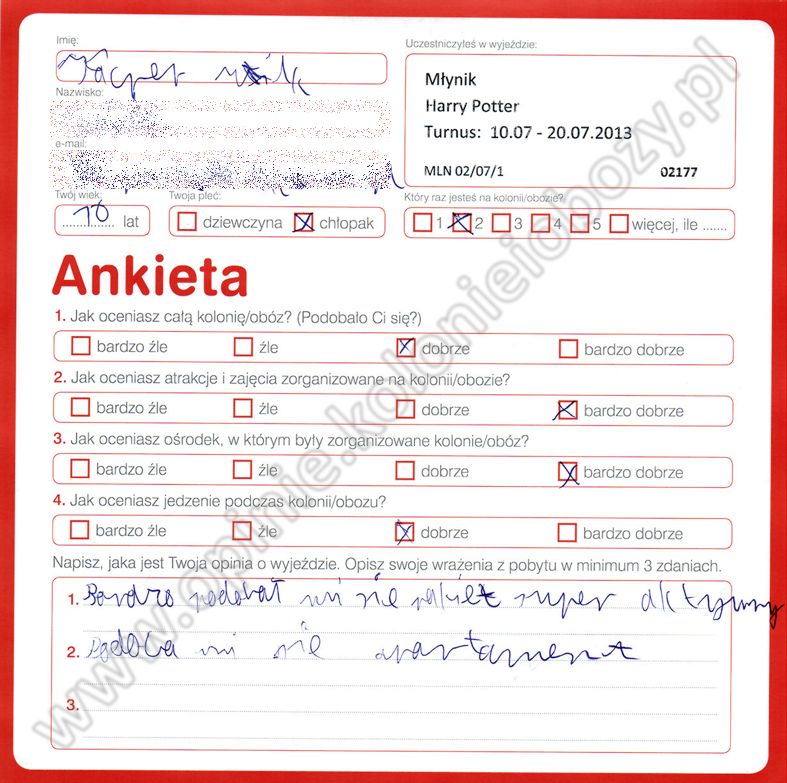 Imię:
Kacper
Nazwisko:
e-mail:
Twój wiek:
10 lat
Twoja płeć:
dziewczyna chłopak
Uczestniczyłeś w wyjeździe:
Młynik
Harry Potter
Turnus: 10.07 - 20.07.2013
MLN 02/07/1 02177
Który raz jesteś na kolonii/obozie?
1 2 3 4 5 więcej, ile .......
Ankieta
1. Jak oceniasz całą kolonię/obóz? (Podobało Ci się?)
bardzo źle źle dobrze bardzo dobrze
2. Jak oceniasz atrakcje i zajęcia zorganizowane na kolonii/obozie?
bardzo źle źle dobrze bardzo dobrze
3. Jak oceniasz ośrodek, w którym były zorganizowane kolonie/obóz?
bardzo źle źle dobrze bardzo dobrze
4. Jak oceniasz jedzenie podczas kolonii/obozu?
bardzo źle źle dobrze bardzo dobrze
Napisz, jaka jest Twoja opinia o wyjeździe. Opisz swoje wrażenia z pobytu w minimum 3 zdaniach.
1. Bardzo podobał mi sie pakiet super aktywny
2. Podoba mi sie apartament
3.
www.opinie.kolonieiobozy.pl